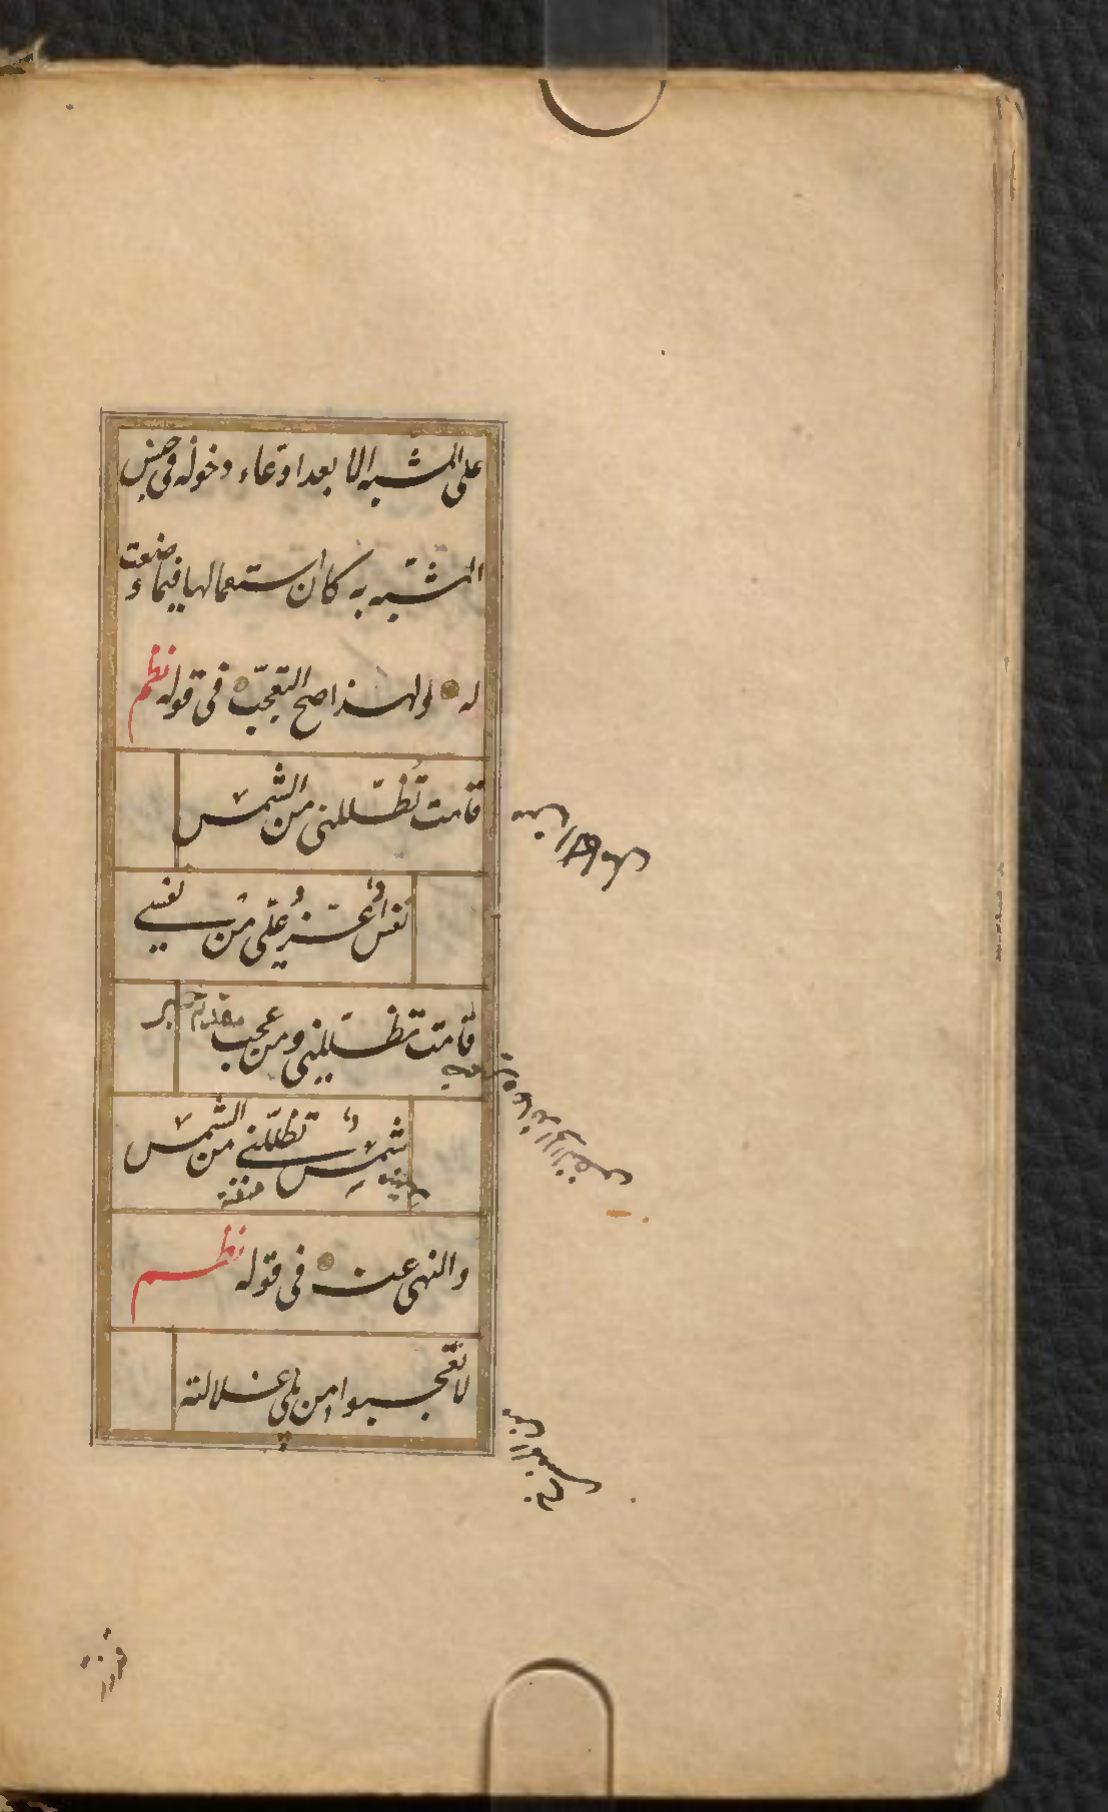 على المشبه الا بعد ادعاء دخوله فى جنس
المشبه به كان استعمالها فيما وضعت
له ولهذا صح التعجب فى قوله نظم
قامت تظللنى من الشمس
نفس اعز على من نفسي
قامت تظللنى ومن عجب
شمس تظللني من الشمس
والنهى عنه فى قوله نظم
لا تعجبوا من بلى غلالته
قد زر